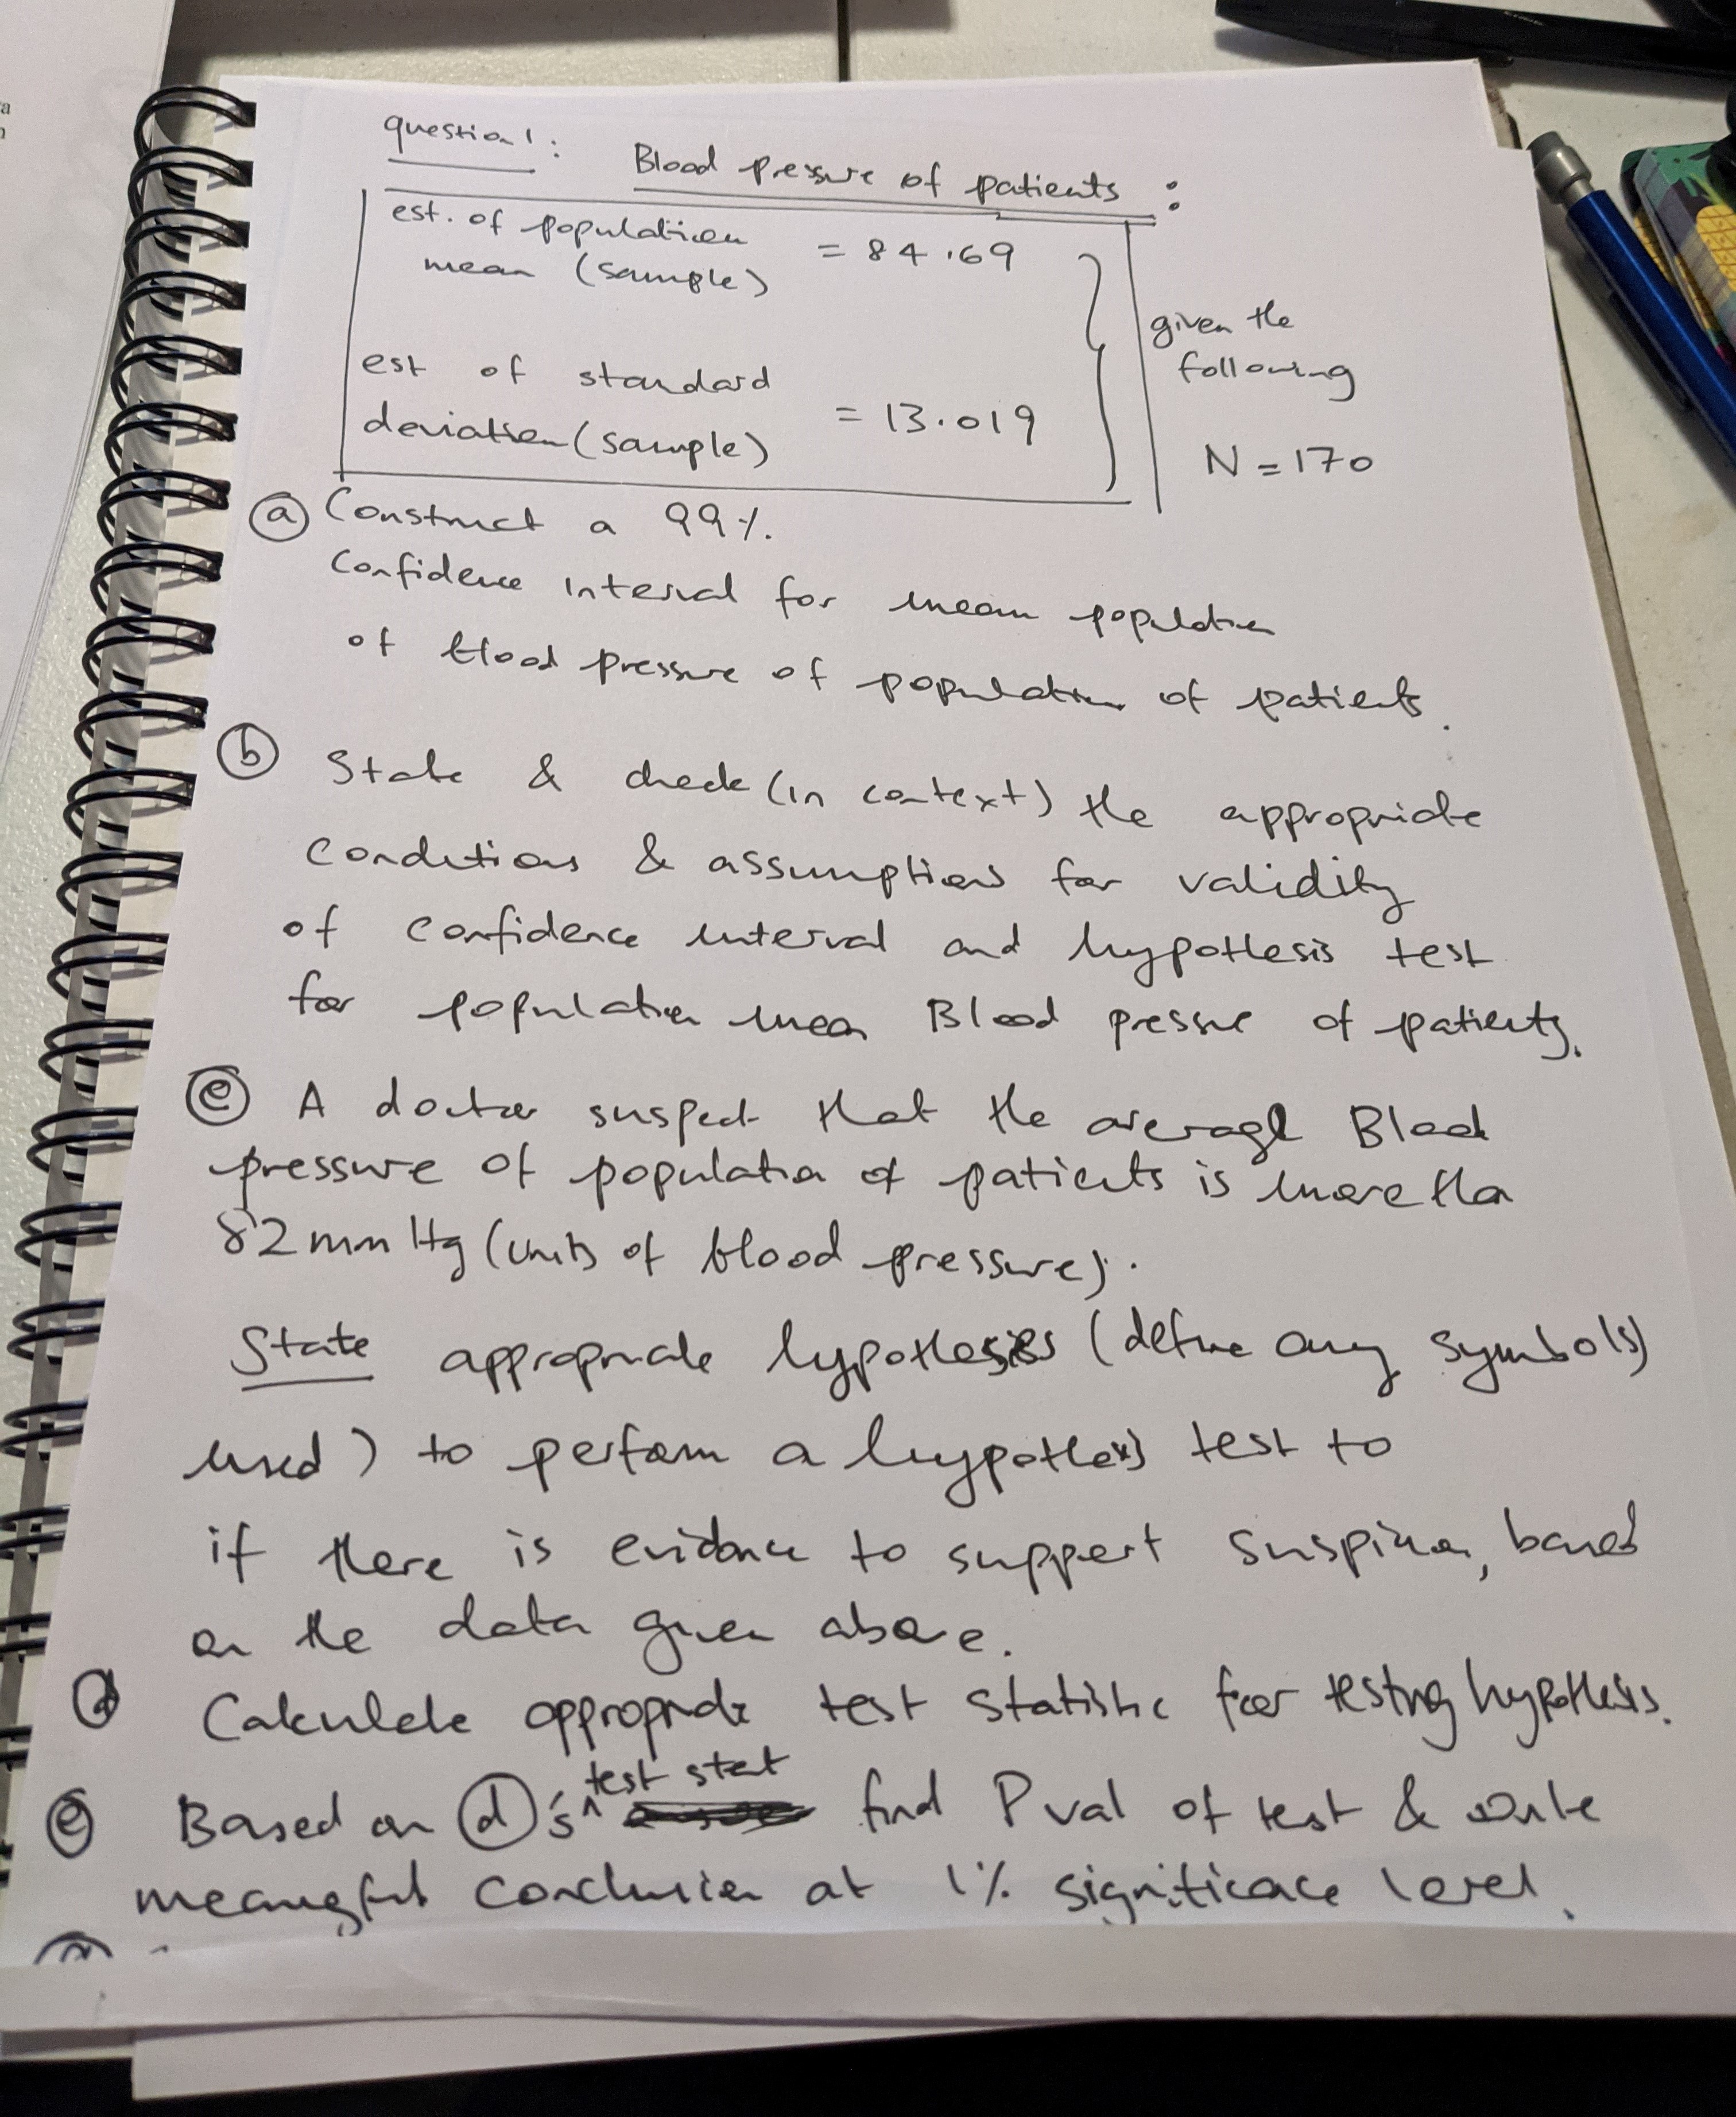 question 1:
Blood pressure of patients :
est. of population
mean (sample) = 84.69
est of standard
deviation (sample) = 13.019
given the
following
N = 170
(a) Construct a 99%.
Confidence interval for mean population
of blood pressure of population of patients.
(b) State & check (in context) the appropriate
conditions & assumptions for validity
of confidence interval and hypothesis test
for population mean Blood pressure of patients.
(c) A doctor suspect that the average Blood
pressure of population of patients is more than
82 mm Hg (units of blood pressure).
State appropriate hypothesises (define any symbols)
used) to perform a hypothesis test to
if there is evidence to support suspicion, based
on the data given above.
(d) Calculate appropriate test statistic for testing hypothesis.
(e) Based on (d)'s ^test stat find P val of test & write
meaningful conclusion at 1% significace level.